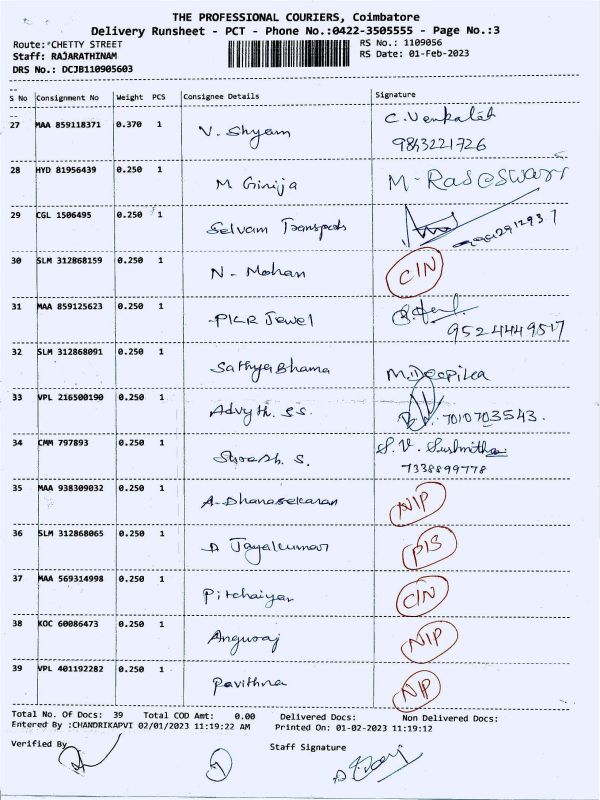 THE PROFESSIONAL COURIERS, Coimbatore
Delivery Runsheet - PCT - Phone No.:0422-3505555 - Page No.:3
Route: CHETTY STREET
RS No.: 1109056
Staff: RAJARATHINAM
RS Date: 01-Feb-2023
DRS No.: DCJB110905603
S No Consignment No Weight PCS Consignee Details Signature
27 MAA 859118371 0.370 1 V. Shyam C. Venkatesh
9843221726
28 HYD 81956439 0.250 1 M Girija M. Rajeswari
29 CGL 1506495 0.250 1 Selvam Transports
30 SLM 312868159 0.250 1 N - Mohan CIN
31 MAA 859125623 0.250 1 PKR Jewel
9524449517
32 SLM 312868091 0.250 1 Sathya Bhama M. Deepika
33 VPL 216500190 0.250 1 Advyth. S.S. 7010703543.
34 CMM 797893 0.250 1 Suresh. S. S. V. Sushmitha
7338899778
35 MAA 938309032 0.250 1 A. Dhanasekaran NIP
36 SLM 312868065 0.250 1 D Jayakumar PIS
37 MAA 569314998 0.250 1 Pitchaiyar CIN
38 KOC 60086473 0.250 1 Anguraj NIP
39 VPL 401192282 0.250 1 Pavithra NIP
Total No. Of Docs: 39 Total COD Amt: 0.00 Delivered Docs: Non Delivered Docs:
Entered By :CHANDRIKAPVI 02/01/2023 11:19:22 AM Printed On: 01-02-2023 11:19:12
Verified By
Staff Signature